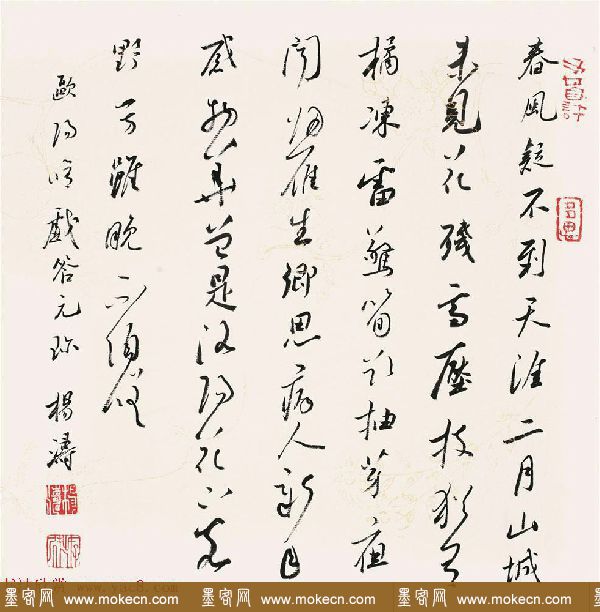 春風疑不到天涯二月山城
未見花殘雪壓枝猶有
橘凍雷驚筍欲抽芽夜
聞歸雁生鄉思病入新年
感物華曾是洛陽花下客
野芳雖晚不須嗟
歐陽修戲答元珍 楊濤
www.yac8.com
墨客网 www.mokecn.com 墨客网 www.mokecn.com 墨客网 www.mokecn.com 墨客网 www.mokecn.com